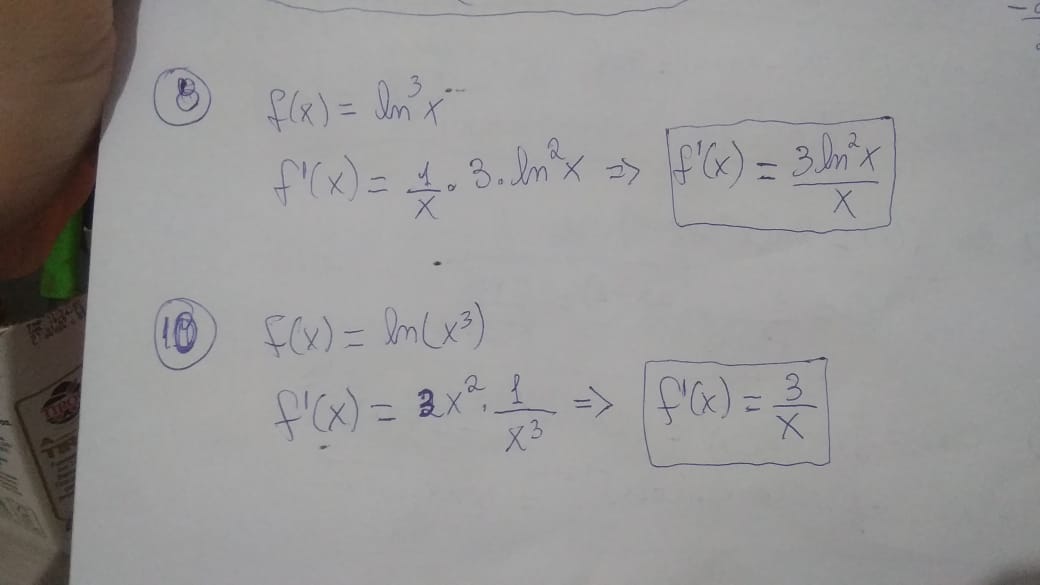 8 f(x) = ln³x
f'(x) = 1/x · 3 · ln²x => f'(x) = 3 ln²x/x
10 f(x) = ln(x³)
f'(x) = 3x² · 1/x³ => f'(x) = 3/x